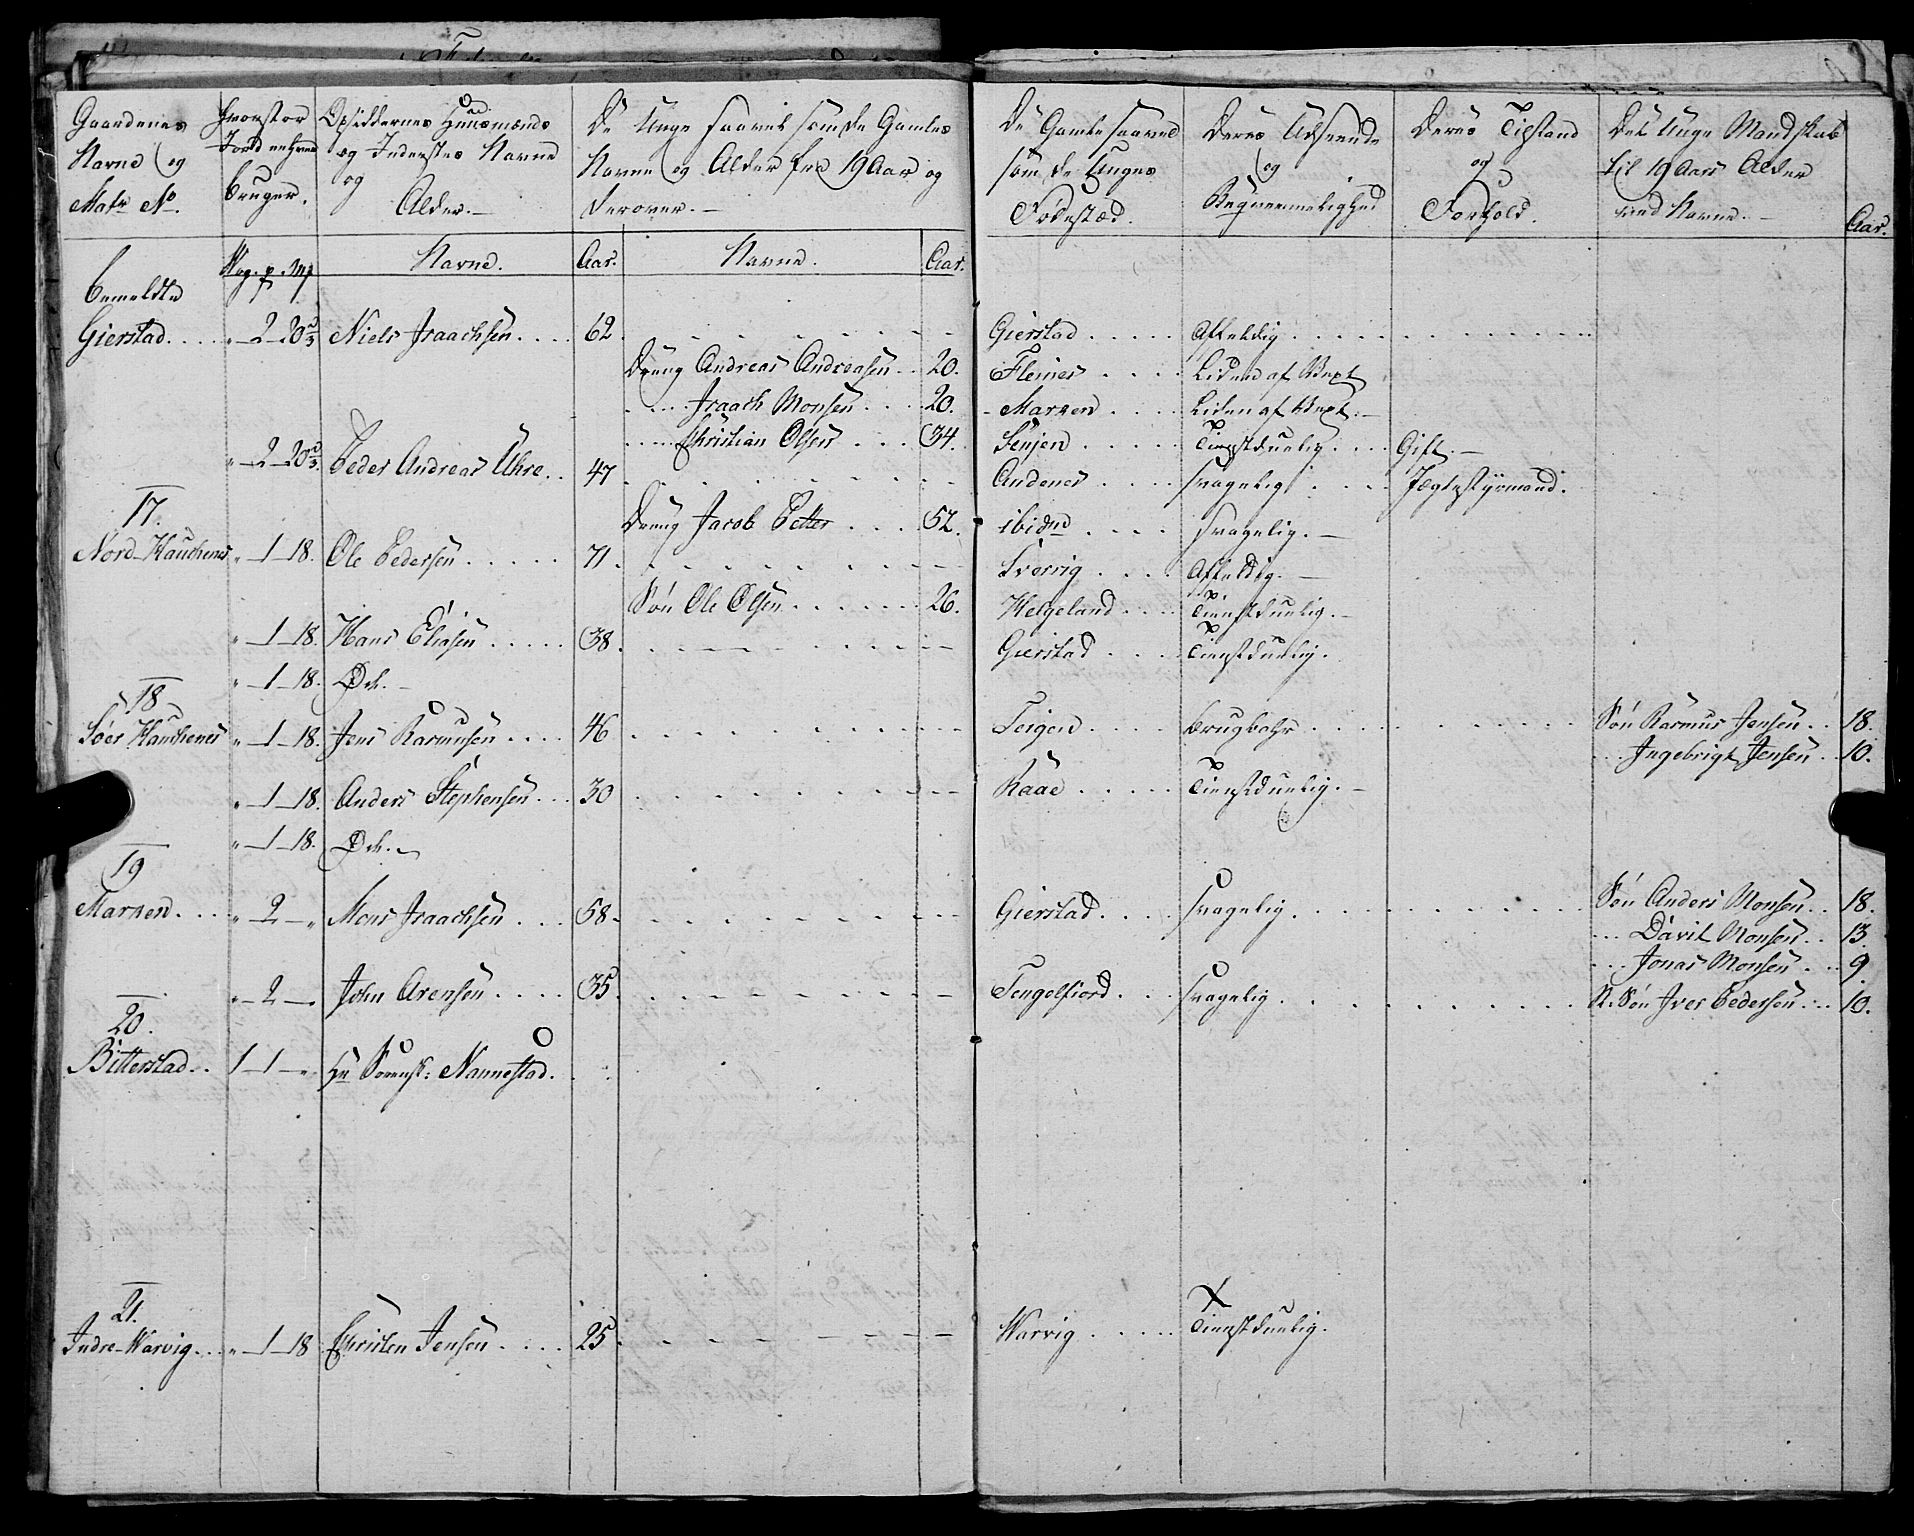 Gaardenes Navne og Matr No.
Hvorstor Jord en hver bruger.
Opsiddernes Huusmænds og Inderstes Navne og Alder.
De Unge saavel som de Gamles Navne og Alder fra 19 Aar og derover.
De Gamle saavel som de Unges Fødestæd.
Deres Udseende og Beqvemmelighed
Deres Tilstand og Forhold.
Det unge Mandskab til 19 Aars Alder ved Navne.
Aar.
Wog. p. mk
Navne.
Aar.
Navne.
Aar.
bemeldte
Gierstad.... " 2 20 2/3 Niels Isaachsen.... 62. Gierstad..... Affeldig......
Dreng Andreas Andreasen.. 20. Fleines.... Liden af Vext
... Isaach Monsen.... 20. Marken.... Liden af Vext.
... Christian Olsen... 34. Senjen..... Tienstduelig.... Gift.
" 2 20 2/3 Peder Andreas Uhre.. 47 Andenes.... svagelig.... Jægtestyrmand.
Dreng Jacob Petter... 52. ibidm.... svagelig.
17.
Nord Hauchenes " 1 18. Ole Pedersen..... 71. Sverrig.... Affeldig.
Søn Ole Olsen...... 26. Helgeland... Tienstduelig.
" 1 18. Hans Eliasen..... 38. Gierstad... Tienstduelig.
" 1 18. Øde.
18
Søer Hauchenes " 1 18. Jens Rasmusen.... 46 Teigen.... brugbahr.... Søn Rasmus Jensen.. 18.
... Ingebrigt Jensen.. 10.
" 1 18. Anders Stephensen... 30 Kaae..... Tienstduelig.
" 1 18. Øde.
19
Marken... " 2 " Mons Isaachsen... 58. Gierstad.... svagelig..... Søn Anders Monsen.. 18.
... Davit Monsen.. 13.
... Jonas Monsen... 9.
" 2 " John Arensen.... 35. Tengelfiord... svagelig..... St. Søn Iver Pedersen... 10.
20.
Bitterstad.. 1 1 " Hr Sorensk: Nannestad.
21.
Indre Warvig... " 1 18 Christen Jensen.... 25. Warvig.... Tienstduelig.